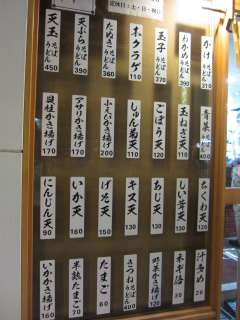 定休日：土・日・祝日
かけ そば うどん 310
わかめ そば うどん 390
玉子 そば うどん 370
キクラゲ 110
たぬき そば うどん 360
天ぷら そば うどん 390
天玉 そば うどん 450
青菜 そば うどん
玉ねぎ天 110
ごぼう天 120
しゅん菊天 110
小えびかき揚げ 200
アサリかき揚げ 170
貝柱かき揚げ 170
ちくわ天 120
しいたけ天
あじ天 130
キス天 130
げそ天 150
いか天 160
にんじん天 90
汁多め 20
ネギ
野菜かき揚げ 120
きつね そば うどん 400
たまご 60
半熟たまご 70
いかかき揚げ 160